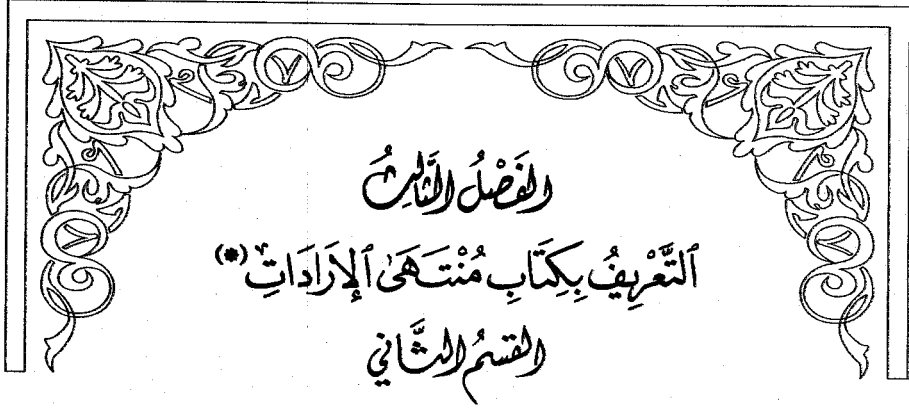 الفَصْلُ الثَّالِثُ
ٱلتَّعْرِيفُ بِكِتَابِ مُنْتَهَىٰ ٱلإِرَادَاتِ (*)
القِسْمُ الثَّانِي